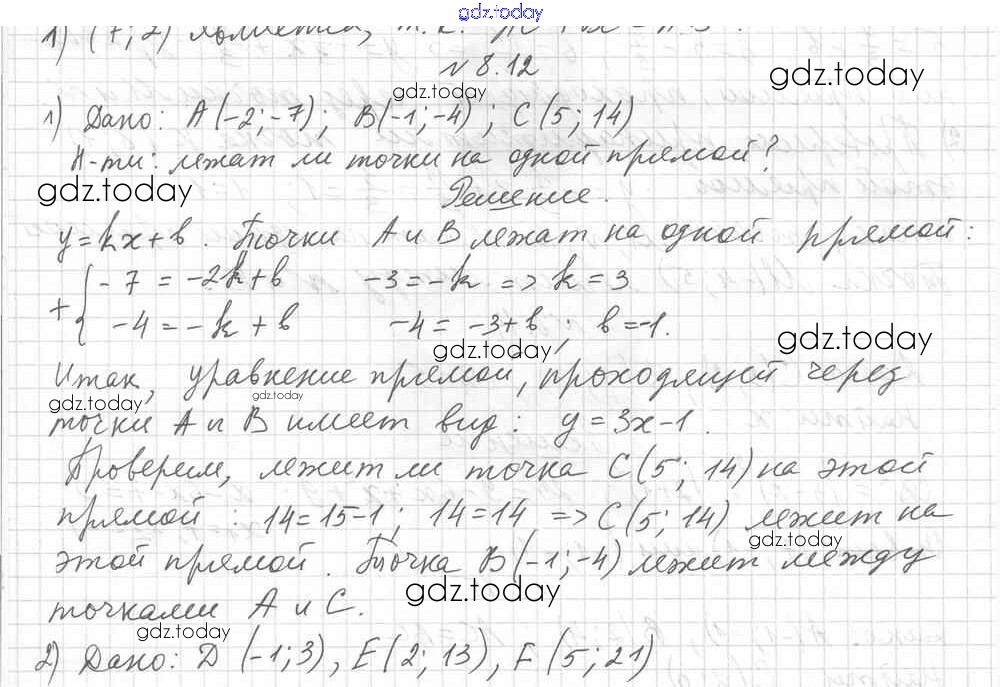 gdz.today
1) (7; 2) является, т.к.
№ 8.12
gdz.today
gdz.today
1) Дано: A(-2; -7); B(-1; -4); C(5; 14)
Н-ти: лежат ли точки на одной прямой?
gdz.today
Решение.
y = kx + b. Точки A и B лежат на одной прямой:
+ { -7 = -2k + b -3 = -k => k = 3
-4 = -k + b -4 = -3 + b; b = -1.
gdz.today
gdz.today
Итак, уравнение прямой, проходящей через
gdz.today
gdz.today
точки A и B имеет вид: y = 3x - 1.
Проверим, лежит ли точка C(5; 14) на этой
прямой: 14 = 15 - 1; 14 = 14 => C(5; 14) лежит на
gdz.today
этой прямой. Точка B(-1; -4) лежит между
gdz.today
точками A и C.
gdz.today
2) Дано: D(-1; 3), E(2; 13), F(5; 21)